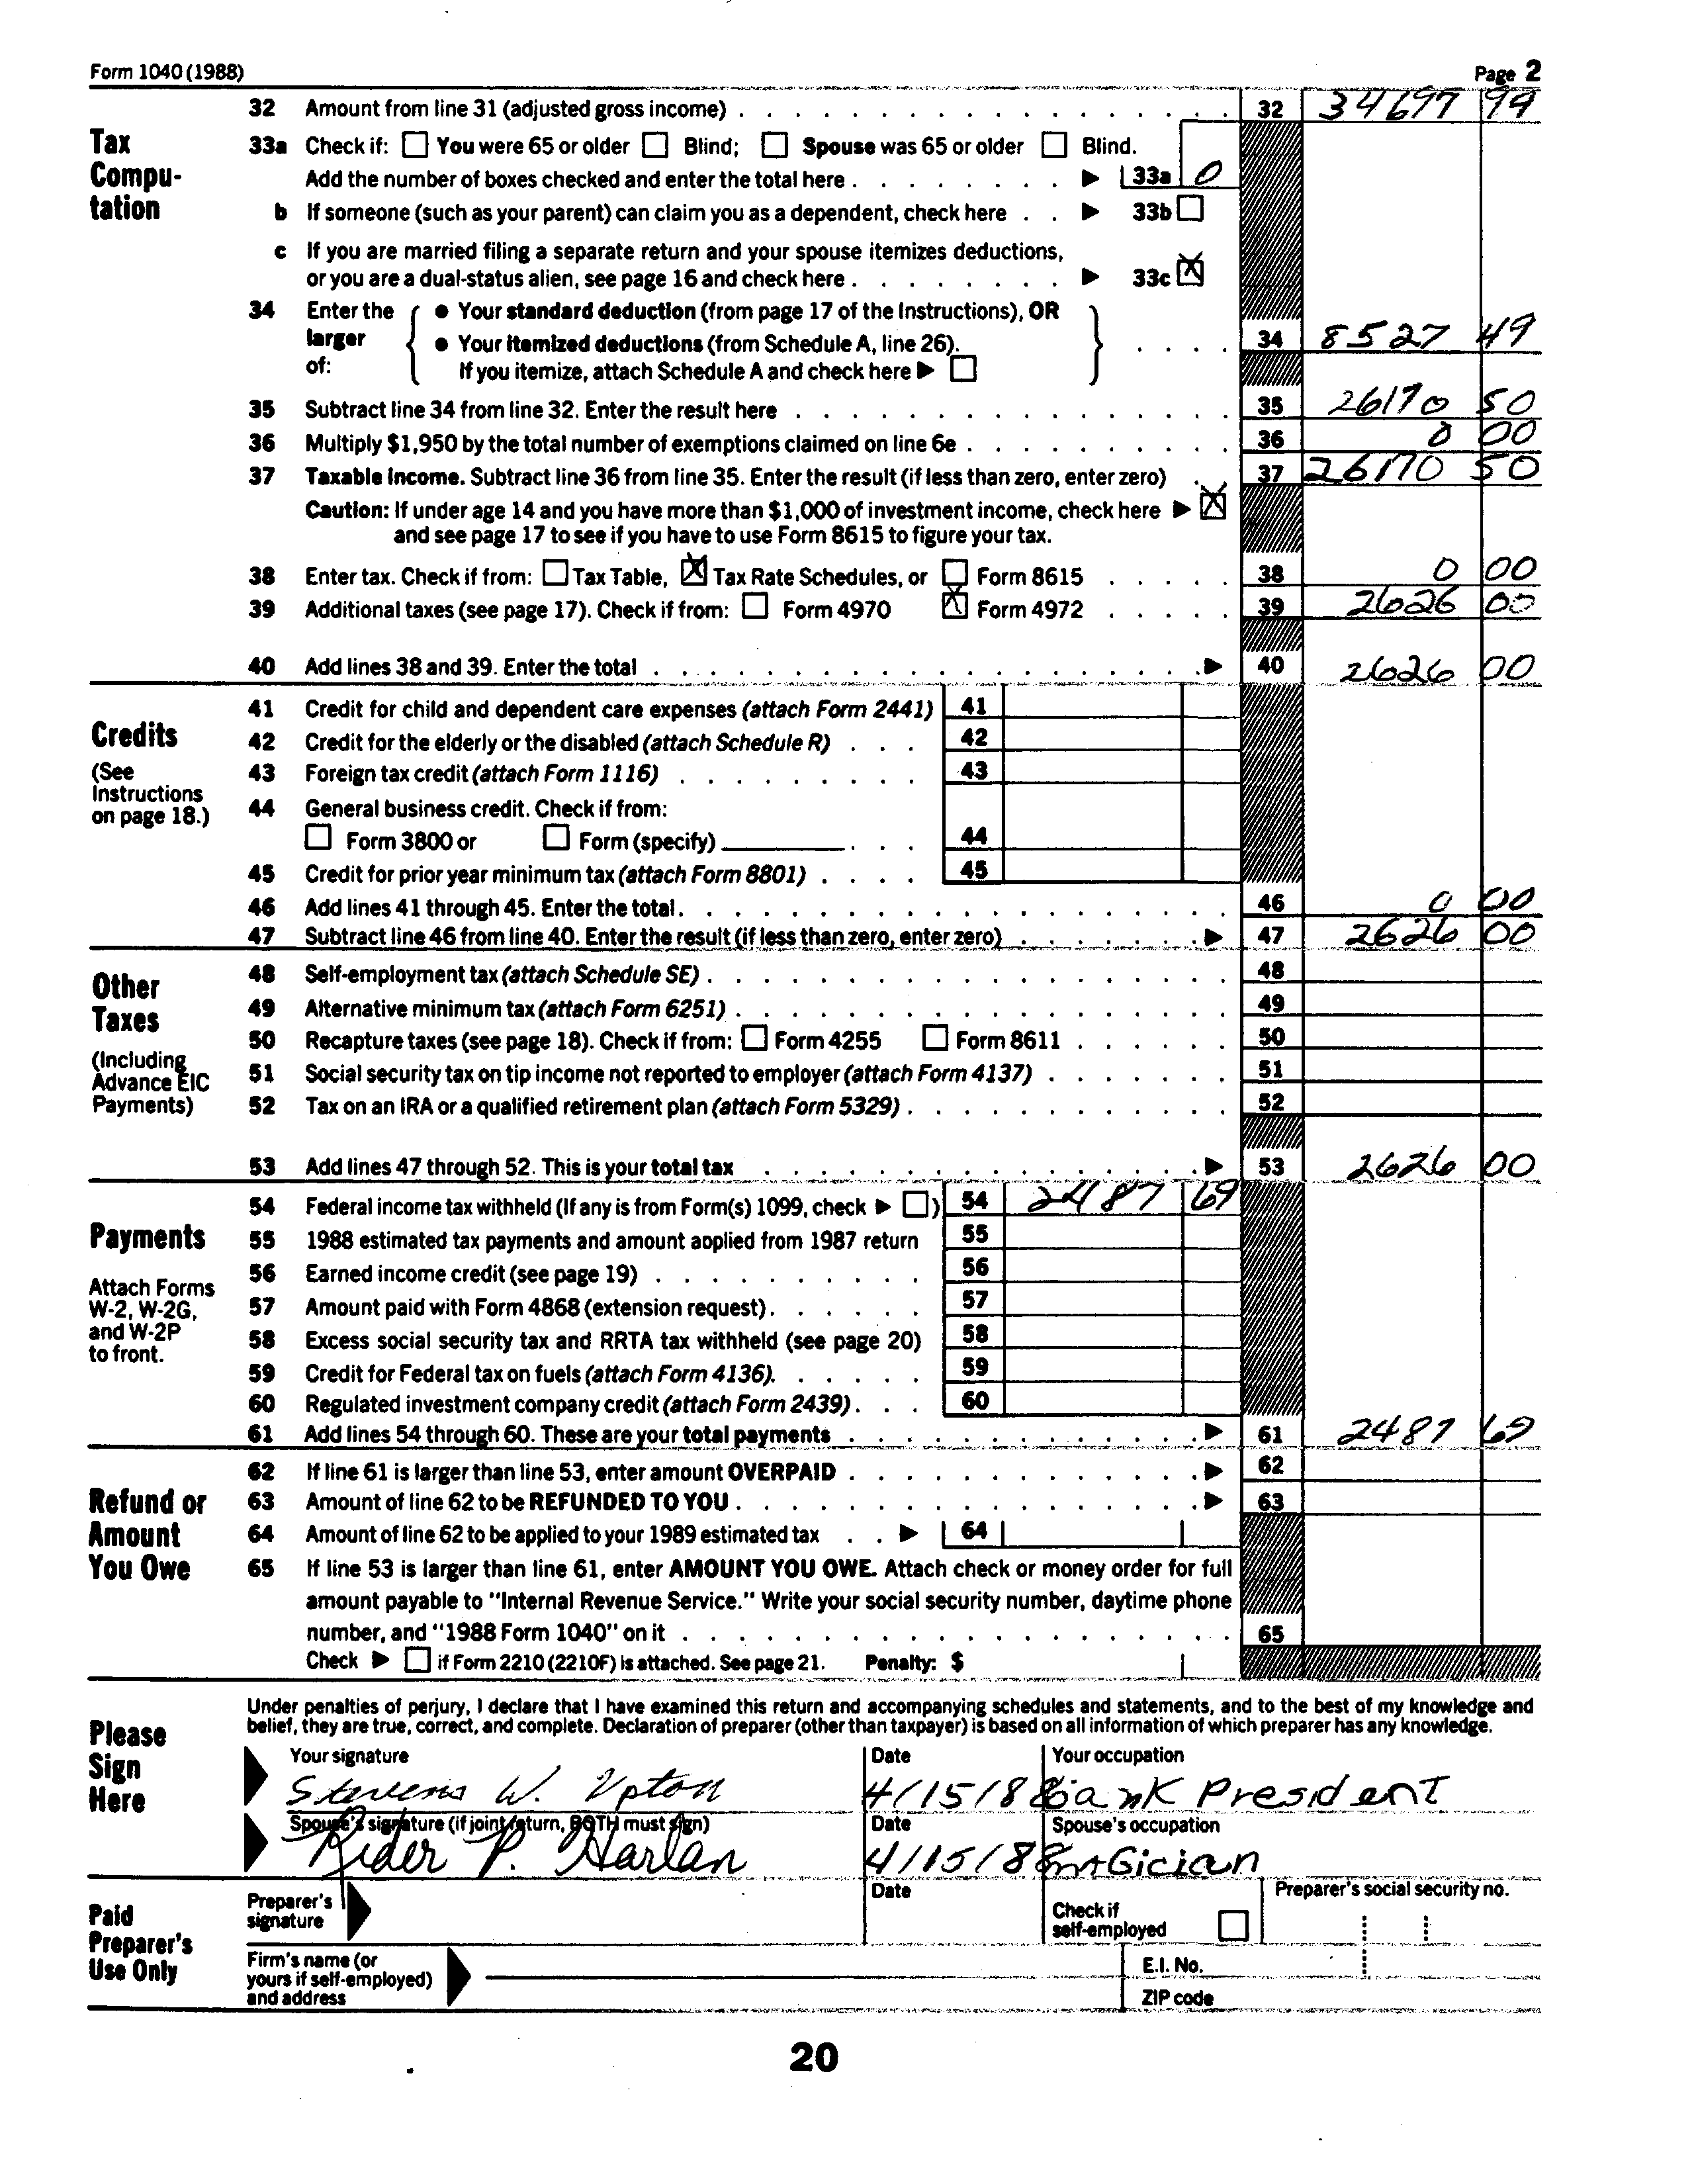 Form 1040 (1988) Page 2
32 Amount from line 31 (adjusted gross income) . . . 32 34697 99
Tax Compu-tation
33a Check if: ☐ You were 65 or older ☐ Blind; ☐ Spouse was 65 or older ☐ Blind.
Add the number of boxes checked and enter the total here . . . ▶ 33a 0
b If someone (such as your parent) can claim you as a dependent, check here . . ▶ 33b ☐
c If you are married filing a separate return and your spouse itemizes deductions,
or you are a dual-status alien, see page 16 and check here . . . ▶ 33c ☒
34 Enter the larger of: { ● Your standard deduction (from page 17 of the Instructions), OR
● Your itemized deductions (from Schedule A, line 26). } . . . . 34 8527 49
If you itemize, attach Schedule A and check here ▶ ☐
35 Subtract line 34 from line 32. Enter the result here . . . 35 26170 50
36 Multiply $1,950 by the total number of exemptions claimed on line 6e . . . 36 0 00
37 Taxable income. Subtract line 36 from line 35. Enter the result (if less than zero, enter zero) . 37 26170 50
Caution: If under age 14 and you have more than $1,000 of investment income, check here ▶ ☒
and see page 17 to see if you have to use Form 8615 to figure your tax.
38 Enter tax. Check if from: ☐ Tax Table, ☒ Tax Rate Schedules, or ☐ Form 8615 . . . 38 0 00
39 Additional taxes (see page 17). Check if from: ☐ Form 4970 ☒ Form 4972 . . . 39 2626 00
40 Add lines 38 and 39. Enter the total . . . ▶ 40 2626 00
Credits
(See Instructions on page 18.)
41 Credit for child and dependent care expenses (attach Form 2441) 41
42 Credit for the elderly or the disabled (attach Schedule R) . . . 42
43 Foreign tax credit (attach Form 1116) . . . 43
44 General business credit. Check if from:
☐ Form 3800 or ☐ Form (specify) . . . 44
45 Credit for prior year minimum tax (attach Form 8801) . . . . 45
46 Add lines 41 through 45. Enter the total. . . . 46 0 00
47 Subtract line 46 from line 40. Enter the result (if less than zero, enter zero) . . . ▶ 47 2626 00
Other Taxes
(Including Advance EIC Payments)
48 Self-employment tax (attach Schedule SE) . . . 48
49 Alternative minimum tax (attach Form 6251) . . . 49
50 Recapture taxes (see page 18). Check if from: ☐ Form 4255 ☐ Form 8611 . . . 50
51 Social security tax on tip income not reported to employer (attach Form 4137) . . . 51
52 Tax on an IRA or a qualified retirement plan (attach Form 5329) . . . 52
53 Add lines 47 through 52. This is your total tax . . . ▶ 53 2626 00
Payments
Attach Forms W-2, W-2G, and W-2P to front.
54 Federal income tax withheld (If any is from Form(s) 1099, check ▶ ☐) 54 2487 69
55 1988 estimated tax payments and amount applied from 1987 return 55
56 Earned income credit (see page 19) . . . 56
57 Amount paid with Form 4868 (extension request) . . . 57
58 Excess social security tax and RRTA tax withheld (see page 20) 58
59 Credit for Federal tax on fuels (attach Form 4136). . . . 59
60 Regulated investment company credit (attach Form 2439) . . . 60
61 Add lines 54 through 60. These are your total payments . . . ▶ 61 2487 69
Refund or Amount You Owe
62 If line 61 is larger than line 53, enter amount OVERPAID . . . ▶ 62
63 Amount of line 62 to be REFUNDED TO YOU . . . ▶ 63
64 Amount of line 62 to be applied to your 1989 estimated tax . . ▶ 64
65 If line 53 is larger than line 61, enter AMOUNT YOU OWE. Attach check or money order for full
amount payable to "Internal Revenue Service." Write your social security number, daytime phone
number, and "1988 Form 1040" on it . . . 65
Check ▶ ☐ if Form 2210 (2210F) is attached. See page 21. Penalty: $
Please Sign Here
Under penalties of perjury, I declare that I have examined this return and accompanying schedules and statements, and to the best of my knowledge and
belief, they are true, correct, and complete. Declaration of preparer (other than taxpayer) is based on all information of which preparer has any knowledge.
Your signature Date Your occupation
Stevens W. Upton 4/15/88 Bank President
Spouse's signature (if joint return, BOTH must sign) Date Spouse's occupation
Rider P. Harlan 4/15/88 maGician
Paid Preparer's Use Only
Preparer's signature Date Check if self-employed ☐ Preparer's social security no.
Firm's name (or yours if self-employed) and address E.I. No.
ZIP code
20